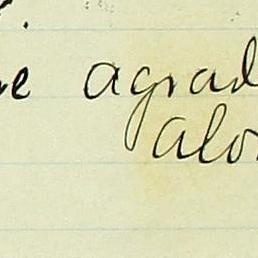 e agrad
alo